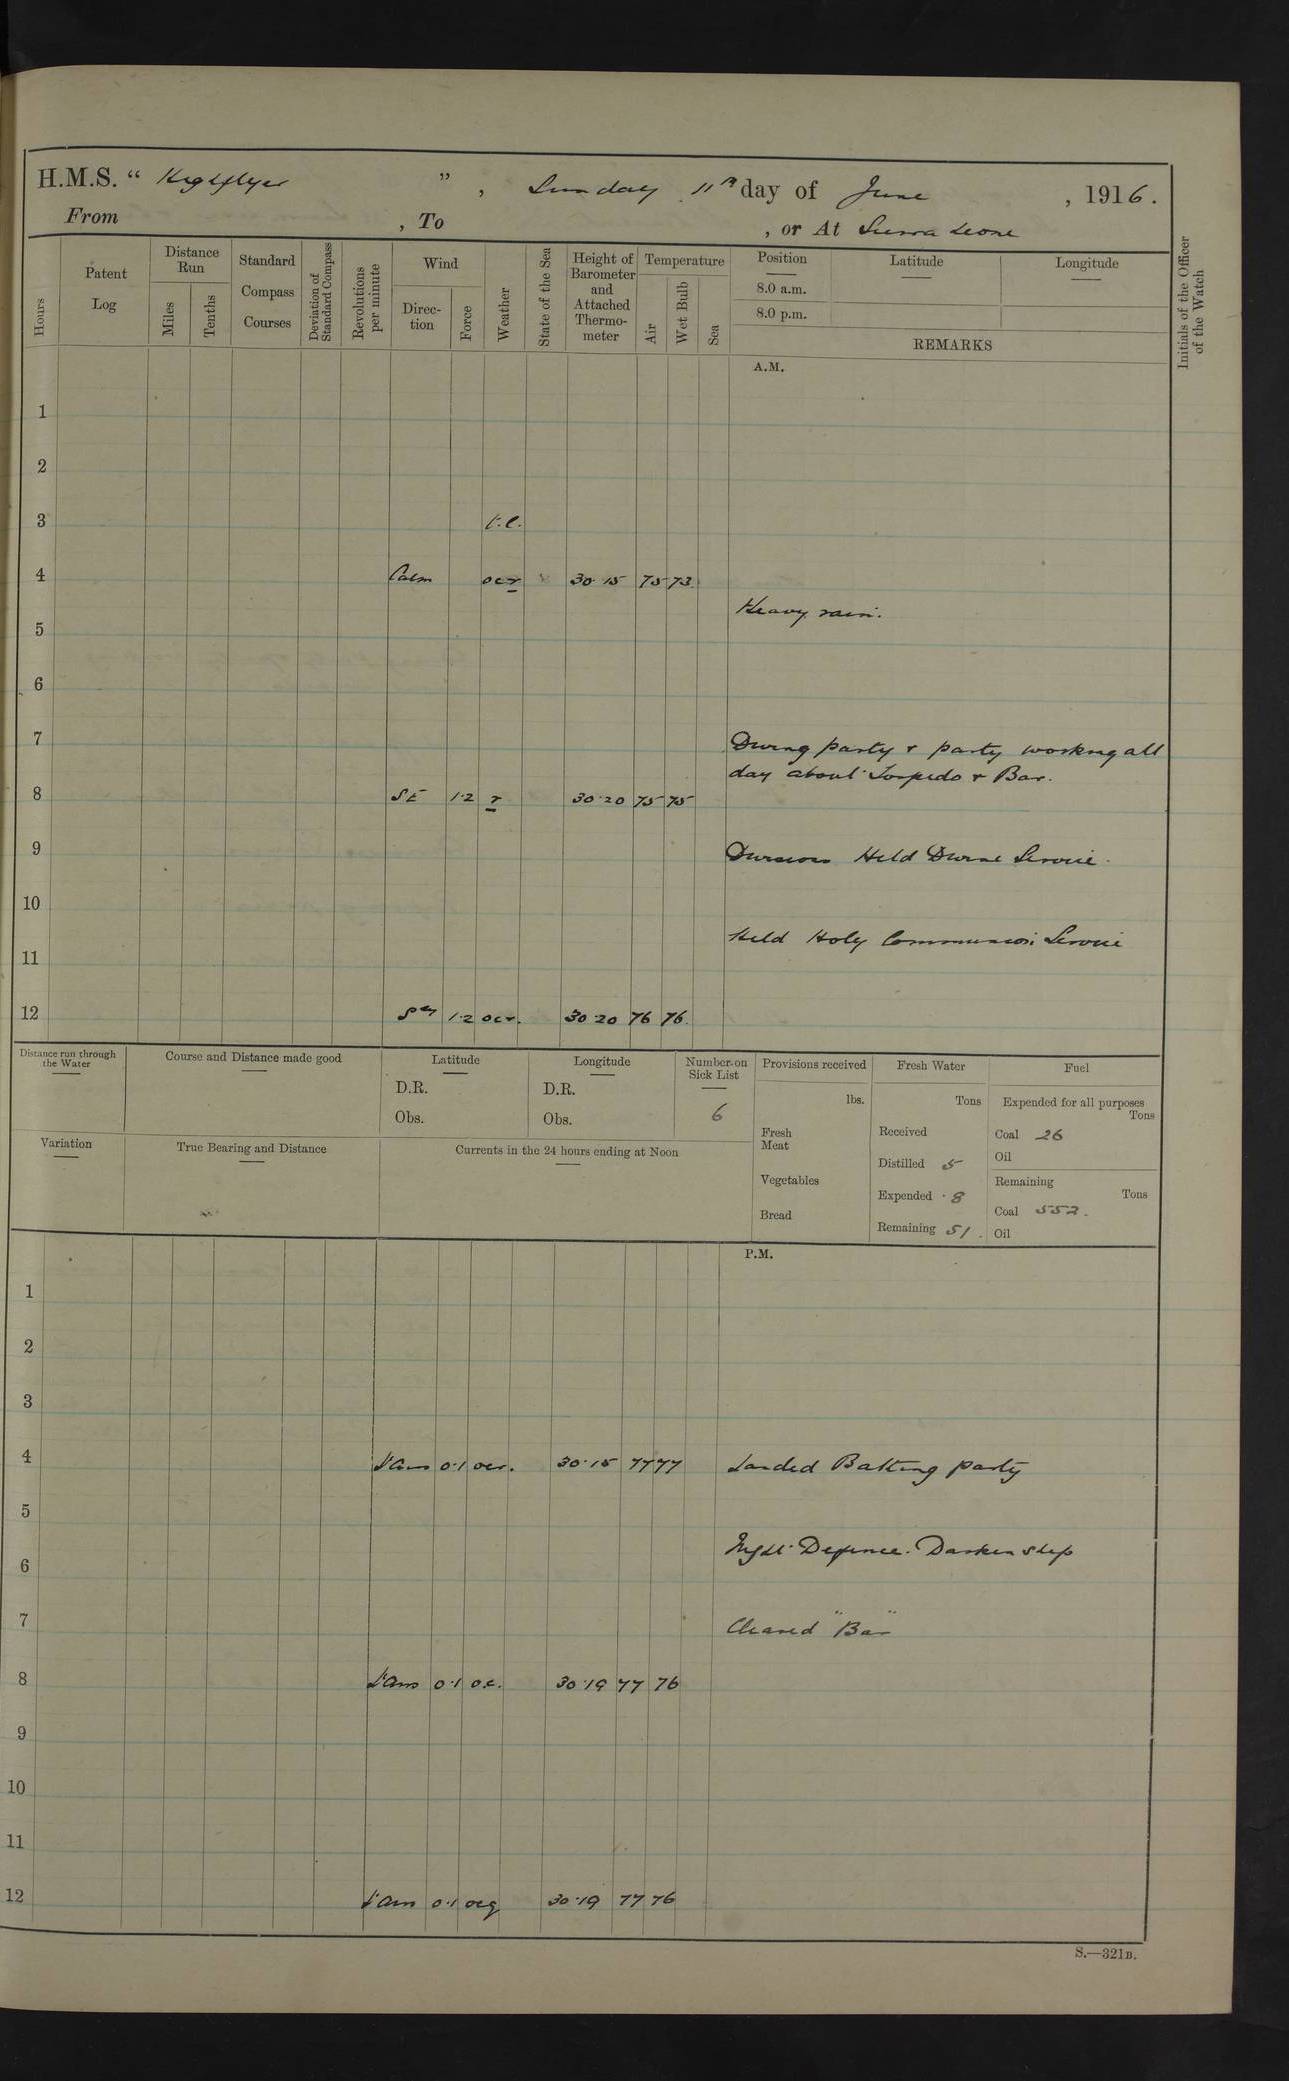 H.M.S. " Highflyer ", Sunday 11th day of June, 1916.
From , To , or At Sierra Leone
Hours
Patent Log
Distance Run
Miles
Tenths
Standard Compass Courses
Deviation of Standard Compass
Revolutions per minute
Wind
Direction
Force
Weather
State of the Sea
Height of Barometer and Attached Thermometer
Temperature
Air
Wet Bulb
Sea
Position
8.0 a.m.
8.0 p.m.
Latitude
Longitude
REMARKS
Initials of the Officer of the Watch
A.M.
1
2
3
4 Calm ocr 30.15 75 73
Heavy rain.
5
6
7 Diving party & party working all
day about Torpedo & Bar.
8 SE 1.2 r 30.20 75 75
9 Divisions Held Divine Service.
10
Held Holy Communion Service
11
12 1.2 ocr. 30.20 76 76
Distance run through the Water
Course and Distance made good
Latitude
D.R.
Obs.
Longitude
D.R.
Obs.
Number on Sick List
6
Variation
True Bearing and Distance
Currents in the 24 hours ending at Noon
Provisions received
lbs.
Fresh Meat
Vegetables
Bread
Fresh Water
Tons
Received
Distilled 5
Expended 8
Remaining 51
Fuel
Expended for all purposes
Tons
Coal 26
Oil
Remaining
Tons
Coal 552.
Oil
P.M.
1
2
3
4 0.1 ocr. 30.15 77 77 Landed Bathing party
5
Night Defence. Darken ship
6
7 Cleared "Bar"
8 0.1 o.c. 30.19 77 76
9
10
11
12 0.1 ocq 30.19 77 76
S.—321B.